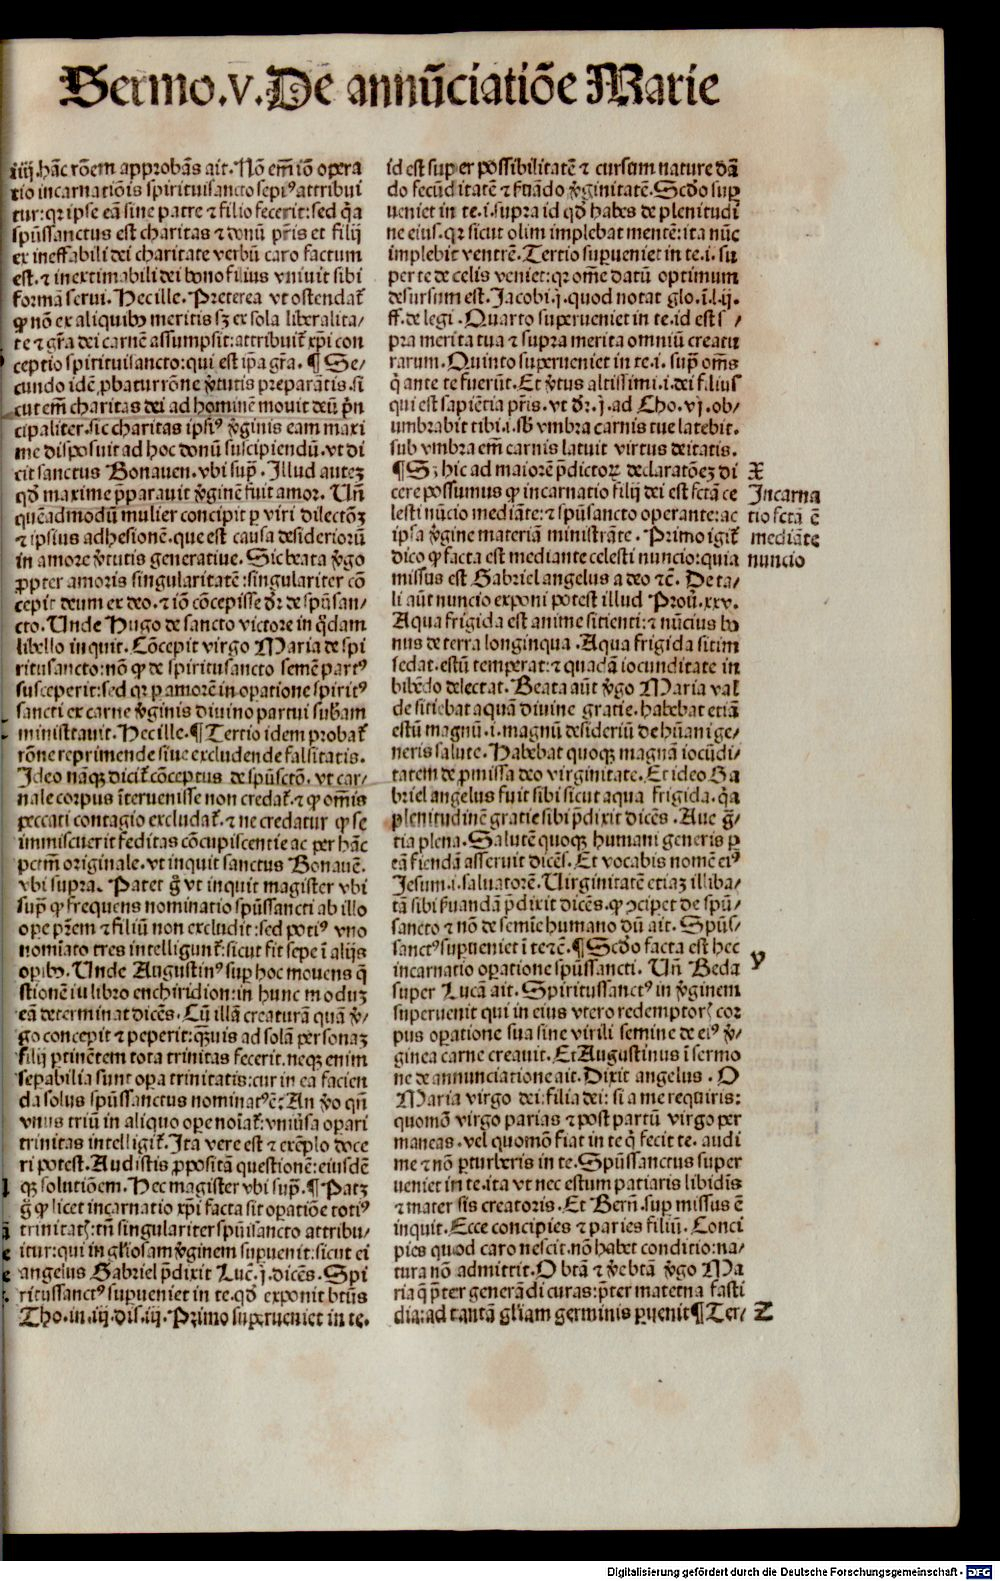 Sermo.v.De annūciatiōe Marie
iiij.hāc rōem approbās ait. Nō em̄ iō opera
tio incarnatiōis spirituisancto sepi⁹ attribui
tur: qr ipse eā sine patre ⁊ filio fecerit: sed q̄a
spūssanctus est charitas ⁊ donū p̄ris et filij
ex ineffabili dei charitate verbū caro factum
est. ⁊ inextimabili dei dono filius vniuit sibi
formā serui. Hec ille. Preterea vt ostendat᷑
ꝙ nō ex aliquibꝰ meritis sꝫ ex sola liberalita⸗
te ⁊ gr̄a dei carnē assumpsit: attribuit᷑ xp̄i con
ceptio spirituisancto: qui est ip̄a gr̄a. ¶ Se⸗
cundo idē ꝓbatur rōne v̄tutis preparātis. si
cut em̄ charitas dei ad hominē mouit deū p̄n
cipaliter. sic charitas ipsi⁹ v̄ginis eam maxi
me disposuit ad hoc donū suscipiendū. vt di
cit sanctus Bonauen. vbi sup̄. Illud auteꝫ
qd̄ maxime p̄parauit v̄ginē fuit amor. Un̄
quēadmodū mulier concipit ꝑ viri dilectōꝫ
⁊ ipsius adhesionē. que est causa desideriorū
in amore v̄tutis generatiue. Sic beata v̄go
ꝓpter amoris singularitatē: singulariter cō
cepit deum ex deo. ⁊ iō cōcepisse dr̄ de spūsan⸗
cto. Unde Hugo de sancto victore in q̄dam
libello inquit. Cōcepit virgo Maria de spi
ritusancto: nō ꝙ de spiritusancto semē part⁹
susceperit: sed qr ꝑ amorē in oꝑatione spirit⁹
sancti ex carne v̄ginis diuino partui sub̄am
ministrauit. Hec ille. ¶ Tertio idem probat᷑
rōne reprimende siue excludende falsitatis.
Ideo nāqꝫ dicit᷑ cōceptus de spūsctō. vt car⸗
nale corpus īteruenisse non credat᷑. ⁊ ꝙ omīs
peccati contagio excludat᷑. ⁊ ne credatur ꝙ se
immiscuerit feditas cōcupiscentie ac per hāc
pctm̄ originale. vt inquit sanctus Bonauē.
vbi supra. Patet g̊ vt inquit magister vbi
sup̄ ꝙ frequens nominatio spūssancti ab illo
ope p̄rem ⁊ filiū non excludit: sed poti⁹ vno
nomīato tres intelligunt᷑: sicut fit sepe ī alijs
oꝑibꝰ. Unde Augustin⁹ suꝑ hoc mouens q̄
stionē iu libro enchiridion: in hunc moduꝫ
eā determinat dicēs. Cū illā creaturā quā v̄⸗
go concepit ⁊ peperit: q̄ꝫuis ad solā personaꝫ
filij ꝑtinētem tota trinitas fecerit. neqꝫ enim
seꝑabilia sunt oꝑa trinitatis: cur in ea facien
da solus spūssanctus nominat⁹ ē: An v̄o qn̄
vnus triū in aliquo ope noīat᷑: vniūsa oꝑari
trinitas intelligit᷑. Ita vere est ⁊ exēplo doce
ri potest. Audistis ꝓpositā questionē: eiusdē
qꝫ solutiōem. Hec magister vbi sup̄. ¶ Patꝫ
g̊ ꝙ licet incarnatio xp̄i facta sit oꝑatiōe toti⁹
trinitatꝭ: tn̄ singulariter spūisancto attribu⸗
itur: qui in gl̄iosam v̄ginem suꝑuenit: sicut ei
angelus Gabriel p̄dixit Luc̄. j. dicēs. Spi
ritussanct⁹ suꝑueniet in te. qd̄ exponit bt̄us
Tho. in .iij. dis. iij. Primo superueniet in te.
id est super possibilitatē ⁊ cursum nature dā
do fecūditatē ⁊ ẜuādo v̄ginitatē. Scd̄o suꝑ
ueniet in te .i. supra id qd̄ habes de plenitudi
ne eius. qr sicut olim implebat mentē: ita nūc
implebit ventrē. Tertio suꝑueniet in te .i. su
per te de celis veniet: qr om̄e datū optimum
desursum est. Jacobi. j. quod notat glo. ī. l. ij.
ff. de legi. Quarto superueniet in te. id est s⸗
pra merita tua ⁊ supra merita omniū creatu
rarum. Quinto superueniet in te .i. sup̄ om̄s
q̄ ante te fuerūt. Et v̄tus altissimi .i. dei filius
qui est sapiētia p̄ris. vt dr̄. j. ad Cho. vj. ob⸗
umbrabit tibi .i. sub̄ vmbra carnis tue latebit.
sub vmbra em̄ carnis latuit virtus deitatis.
¶ Sꝫ hic ad maiorē p̄dictoꝝ declaratōeꝫ di
cere possumus ꝙ incarnatio filij dei est fctā ce
lesti nūcio mediāte: ⁊ spūsancto operante: ac
ip̄sa v̄gine materiā ministrāte. Primo igit᷑
dico ꝙ facta est mediante celesti nuncio: quia
missus est Gabriel angelus a deo ⁊c̄. De ta⸗
li aūt nuncio exponi potest illud Prou̅. xxv.
Aqua frigida est anime sitienti: ⁊ nūcius bo
nus de terra longinqua. Aqua frigida sitim
sedat. estū temperat: ⁊ quadā iocunditate in
bibēdo delectat. Beata aūt v̄go Maria val
de sitiebat aquā diuine gratie. habebat etiā
estū magnū .i. magnū desideriū de hūani ge⸗
neris salute. Habebat quoqꝫ magnā iocūdi⸗
tatem de ꝓmissa deo virginitate. Et ideo Ga
briel angelus fuit sibi sicut aqua frigida. q̄a
plenitudinē gratie sibi p̄dixit dicēs. Aue gr̄⸗
tia plena. Salutē quoqꝫ humani generis ꝑ
eā fiendā asseruit dicēs. Et vocabis nomē ei⁹
Jesum .i. saluatorē. Uirginitatē etiaꝫ illiba⸗
tā sibi ẜuandā p̄dixit dicēs. ꝙ ꝯciꝑet de spū⸗
sancto ⁊ nō de semīe humano dū ait. Spūs⸗
sanct⁹ suꝑueniet ī te ⁊c̄. ¶ Scd̄o facta est hec
incarnatio oꝑatione spūssancti. Un̄ Beda
super Lucā ait. Spiritussanct⁹ in v̄ginem
superuenit qui in eius vtero redemptorꝭ cor
pus oꝑatione sua sine virili semine de ei⁹ v̄⸗
ginea carne creauit. Et Augustinus ī sermo
ne de annunciatione ait. Dixit angelus. O
Maria virgo dei: filia dei: si a me requiris:
quomō virgo parias ⁊ post partū virgo per
maneas. vel quomō fiat in te q̄ fecit te. audi
me ⁊ nō ꝑturberis in te. Spūssanctus super
ueniet in te. ita vt nec estum patiaris libidis
⁊ mater sis creatoris. Et Bern̄. suꝑ missus ē
inquit. Ecce concipies ⁊ paries filiū. Conci
pies quod caro nescit. nō habet conditio: na⸗
tura nō admittit. O bt̄ā ⁊ v̄e bt̄ā v̄go Ma
ria q̄ p̄ter generādi curas: p̄ter materna fasti
dia: ad tantā gl̄iam germinis ꝑuenit ¶ Ter⸗
X
Incarna
tio fctā ē
mediāte
nuncio
Y
Z
Digitalisierung gefördert durch die Deutsche Forschungsgemeinschaft - DFG